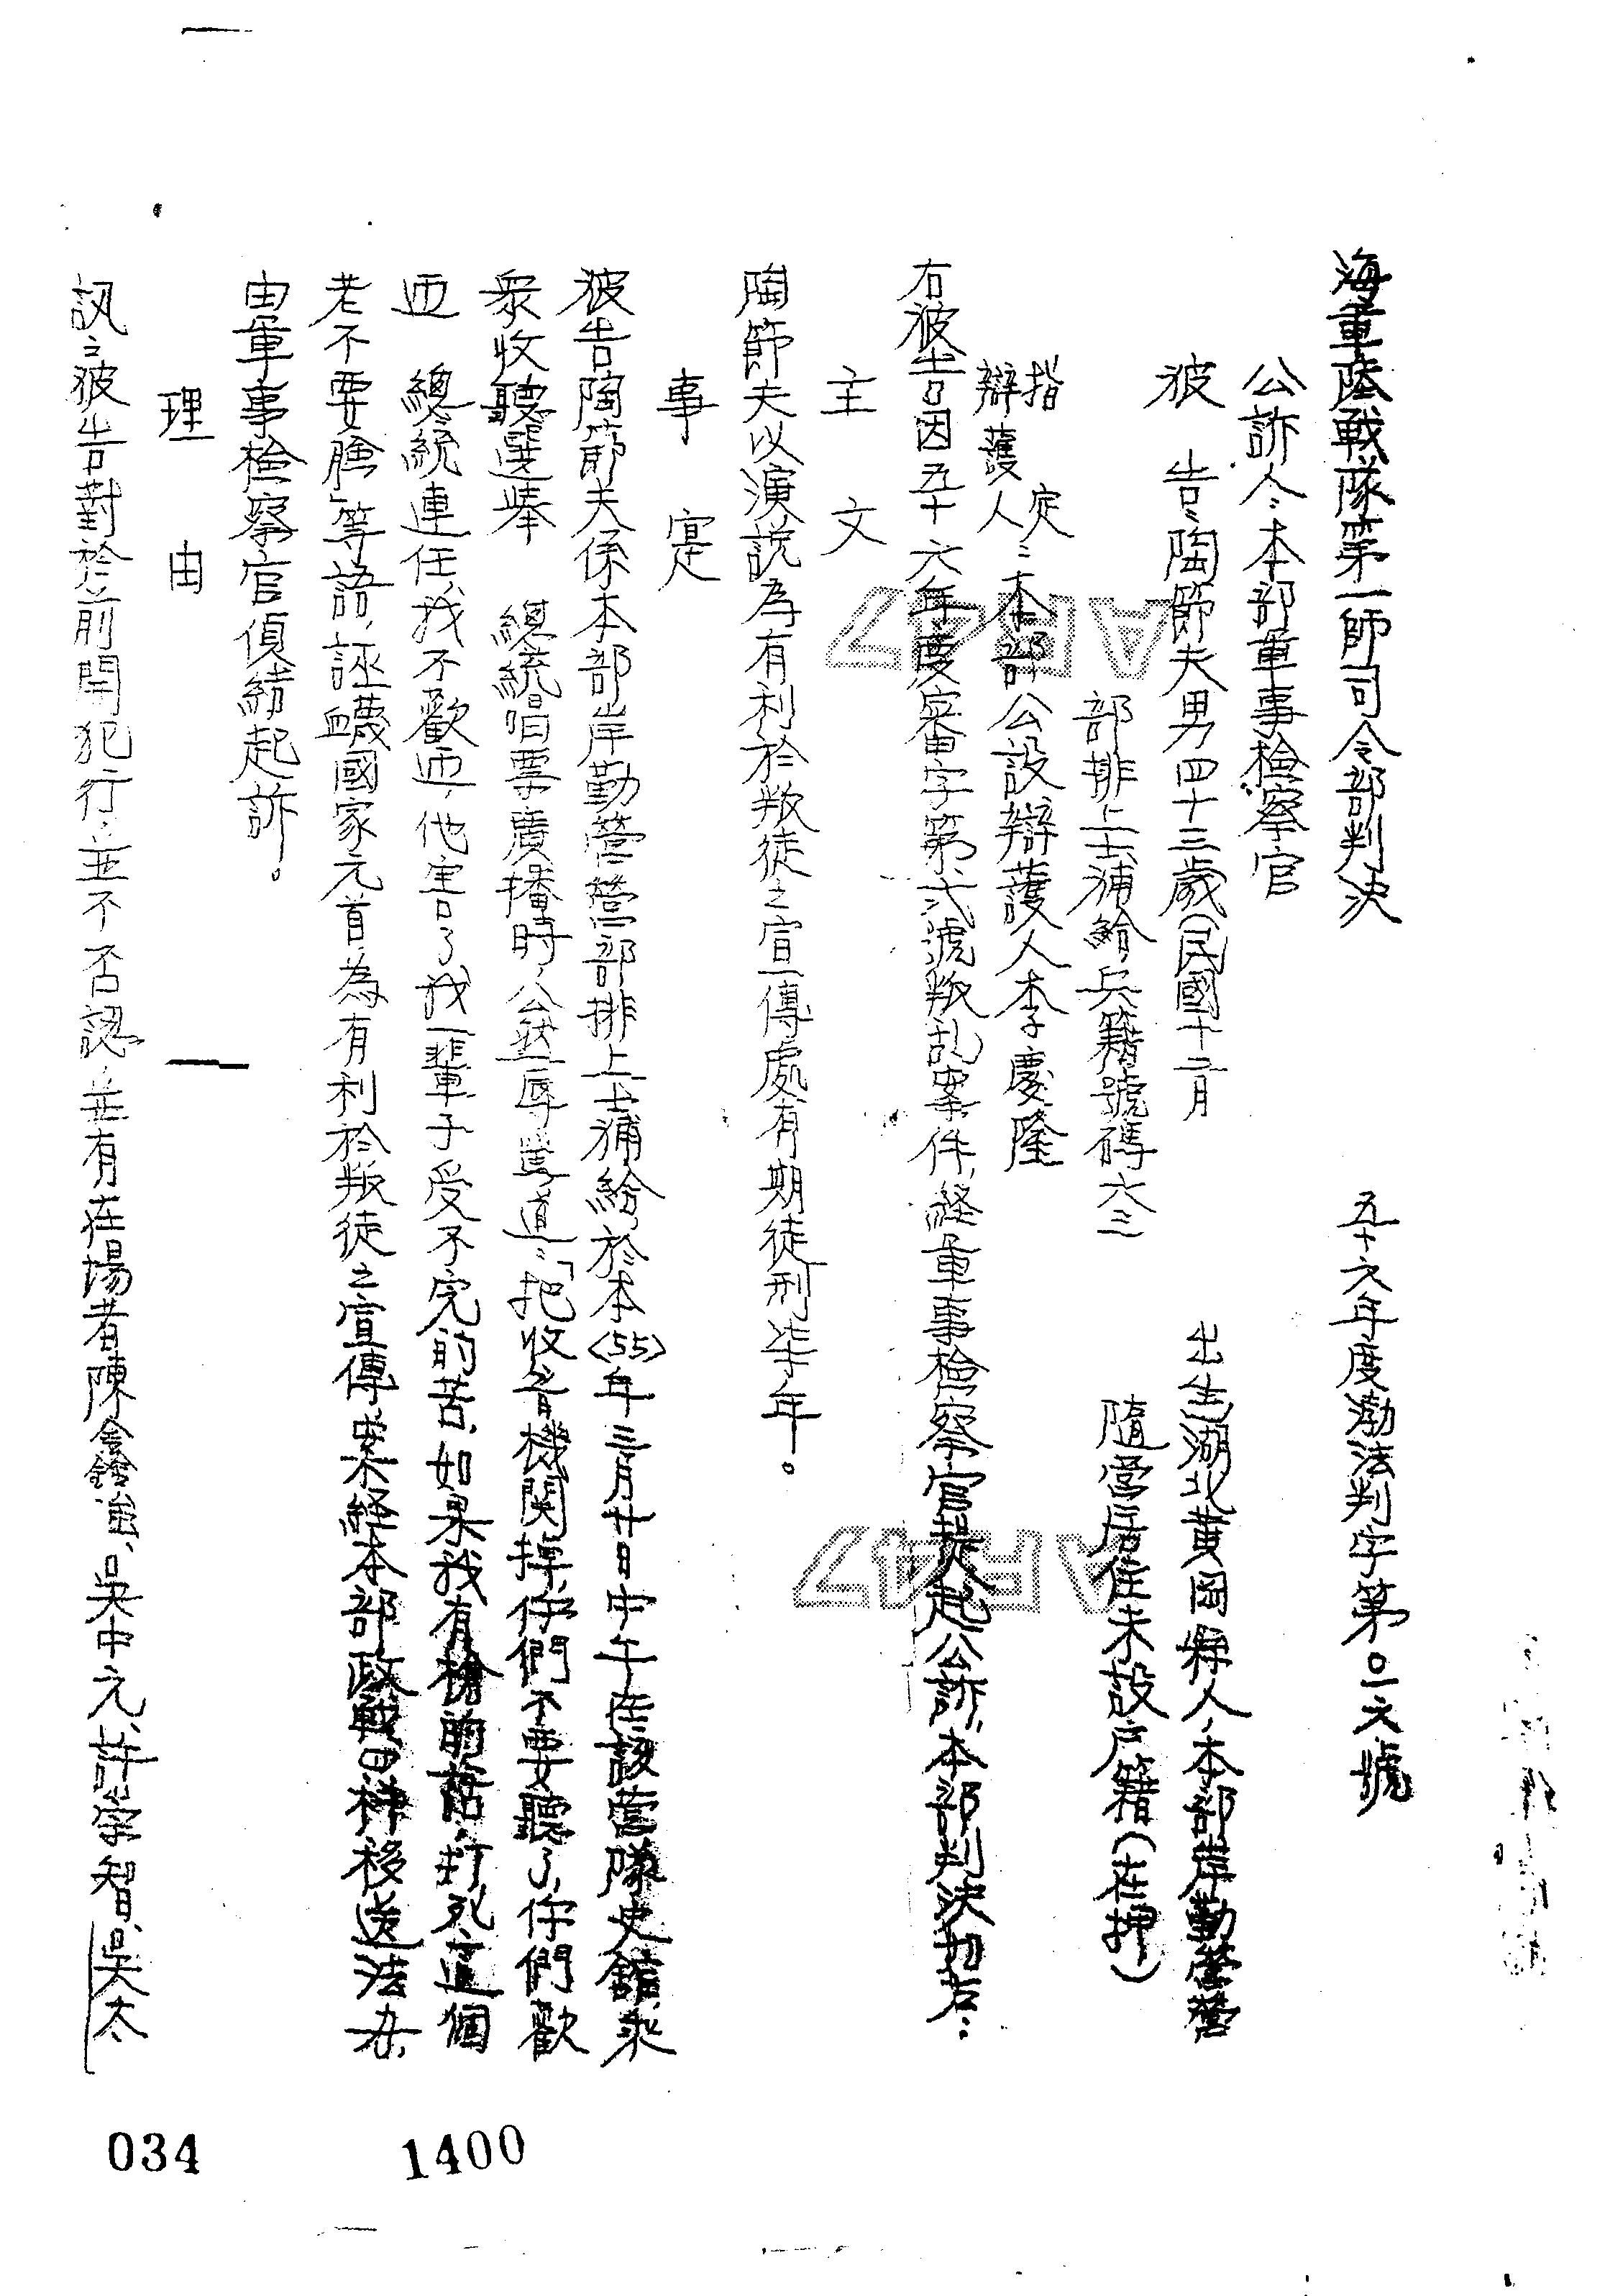 海軍陸戰隊第一師司令部判決
五十六年度渤法判字第〇一六號
公訴人:本部軍事檢察官
被告:陶節夫男四十三歲(民國十二月
出生)湖北黃岡縣人,本部岸勤營營
部排上士補給,兵籍號碼六三
隨營居住未設户籍(在押)
指定
辯護人:本部公設辯護人李慶隆
右被告因五十六年度審字第弍號叛乱案件,經軍事檢察官提起公訴,本部判決如左:
主文
陶節夫以演説為有利於叛徒之宣傳處有期徒刑柒年。
事寔
被告陶節夫係本部岸勤營營部排上士補給,於本<55>年三月廿日中午在該營隊史館,乘
眾收聽選舉 總統唱票廣播時,公然辱罵道:「把收音機関掉,你們不要聽了,你們歡
迎 總統連任,我不歡迎,他害了我一輩子受不完的苦,如果我有槍的話,打死這個
老不要臉」等語,誣衊國家元首,為有利於叛徒之宣傳,案經本部政戰四科移送法办,
由軍事檢察官偵結起訴。
理由
訊之被告對於前開犯行,並不否認,並有在場者陳金鎰、吳中元、許崇智、吳太
034
1400